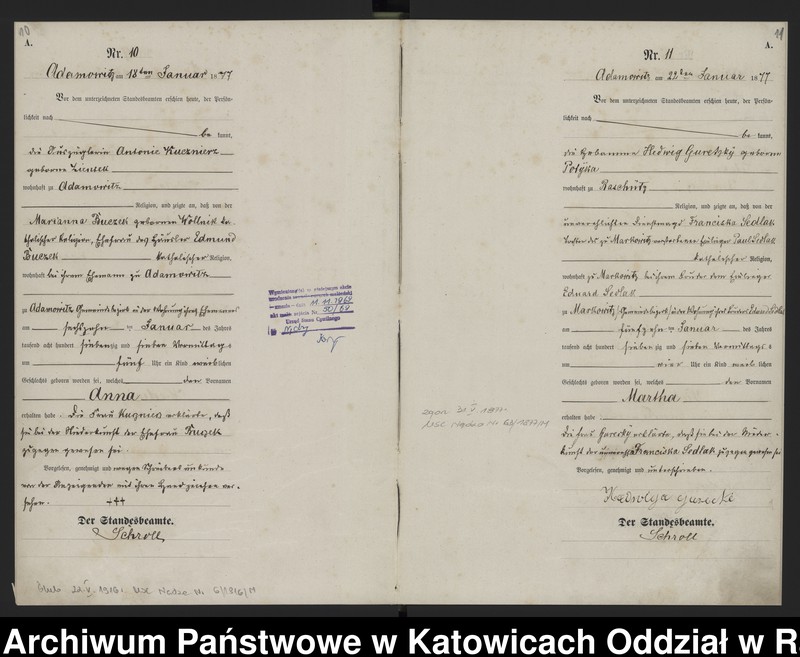 10
A.
Nr. 10
Adamowitz am 18ten Januar 1877
Vor dem unterzeichneten Standesbeamten erschien heute, der Persön-
lichkeit nach
be kannt,
die Auszüglerin Antonie Kucznierz
geborne
wohnhaft zu Adamowitz
Religion, und zeigte an, daß von der
Marianna geborenen Wollnik ka-
tholischer Religion, Ehefrau des Häusler Edmund
katholischer Religion,
wohnhaft bei ihrem Ehemann zu Adamowitz
zu Adamowitz Gemeindebezirk in der Wohnung ihres Ehemannes
am sechszehn ten Januar des Jahres
tausend acht hundert siebenzig und sieben Vormittags
um fünf Uhr ein Kind weiblichen
Geschlechts geboren worden sei, welches den Vornamen
Anna
erhalten habe. Die Frau erklärte, daß
sie bei der Niederkunft der Ehefrau
zugegen gewesen sei.
Vorgelesen, genehmigt und wegen Schreibens unkunde
von der Anzeigenden mit ihren Handzeichen ver-
sehen. +++
Der Standesbeamte.
Schroll
22 V 1916 USC Nr 6/1916/
11.11.1969
Urząd Stanu Cywilnego
11
A.
Nr. 11
Adamowitz am 22ten Januar 1877
Vor dem unterzeichneten Standesbeamten erschien heute, der Persön-
lichkeit nach
be kannt,
die Hebamme Hedwig Guretzky geborene
Potyka
wohnhaft zu Raschütz
Religion, und zeigte an, daß von der
unverehelichten Dienstmagd Franciska Sedlak
Tochter des zu Markowitz verstorbenen Häusler Paul Sedlak
katholischer Religion,
wohnhaft zu Markowitz bei ihrem Bruder dem Häusler
Eduard Sedlak
zu Markowitz Gemeindebezirk in der Wohnung ihres Bruders Eduard Sedlak
am fünfzehn ten Januar des Jahres
tausend acht hundert siebenzig und sieben Vormittags
um vier Uhr ein Kind weiblichen
Geschlechts geboren worden sei, welches den Vornamen
Martha
erhalten habe.
Die Frau Guretzky erklärte, daß sie bei der Nieder-
kunft der Franciska Sedlak zugegen gewesen sei
Vorgelesen, genehmigt und unterschrieben.
Der Standesbeamte.
Schroll
zgon 31 V 1977r.
Archiwum Państwowe w Katowicach Oddział w R